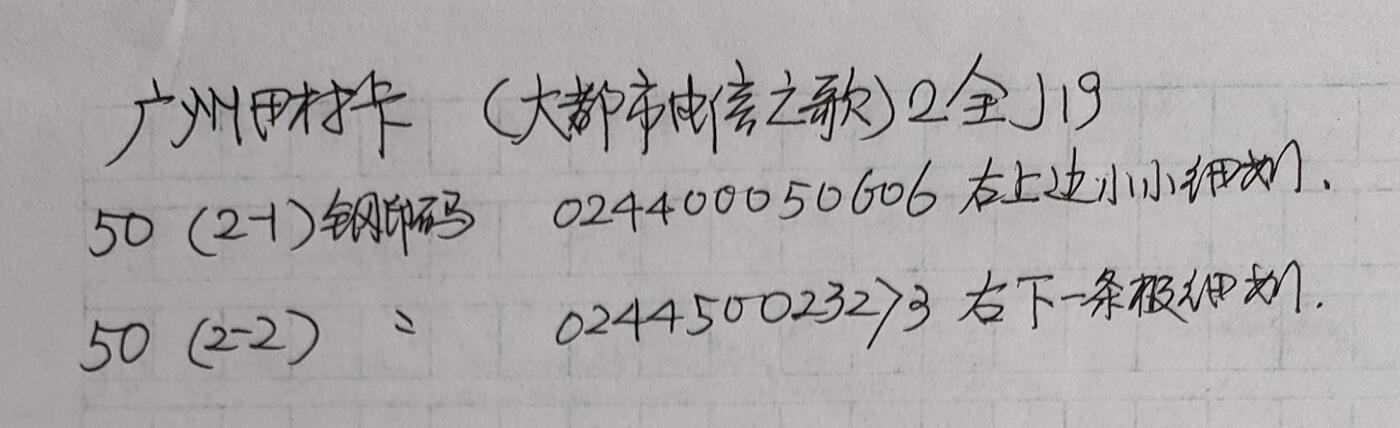 广州田村卡 (大都市电信之歌)2全J19
50 (2-1)钢印码 024400050606 右上边小小细划.
50 (2-2) 〃 024450023273 右下一条极细划.